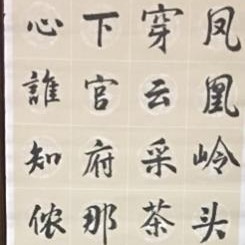 凤凰岭头
穿云采茶
下官府那
心誰知侬